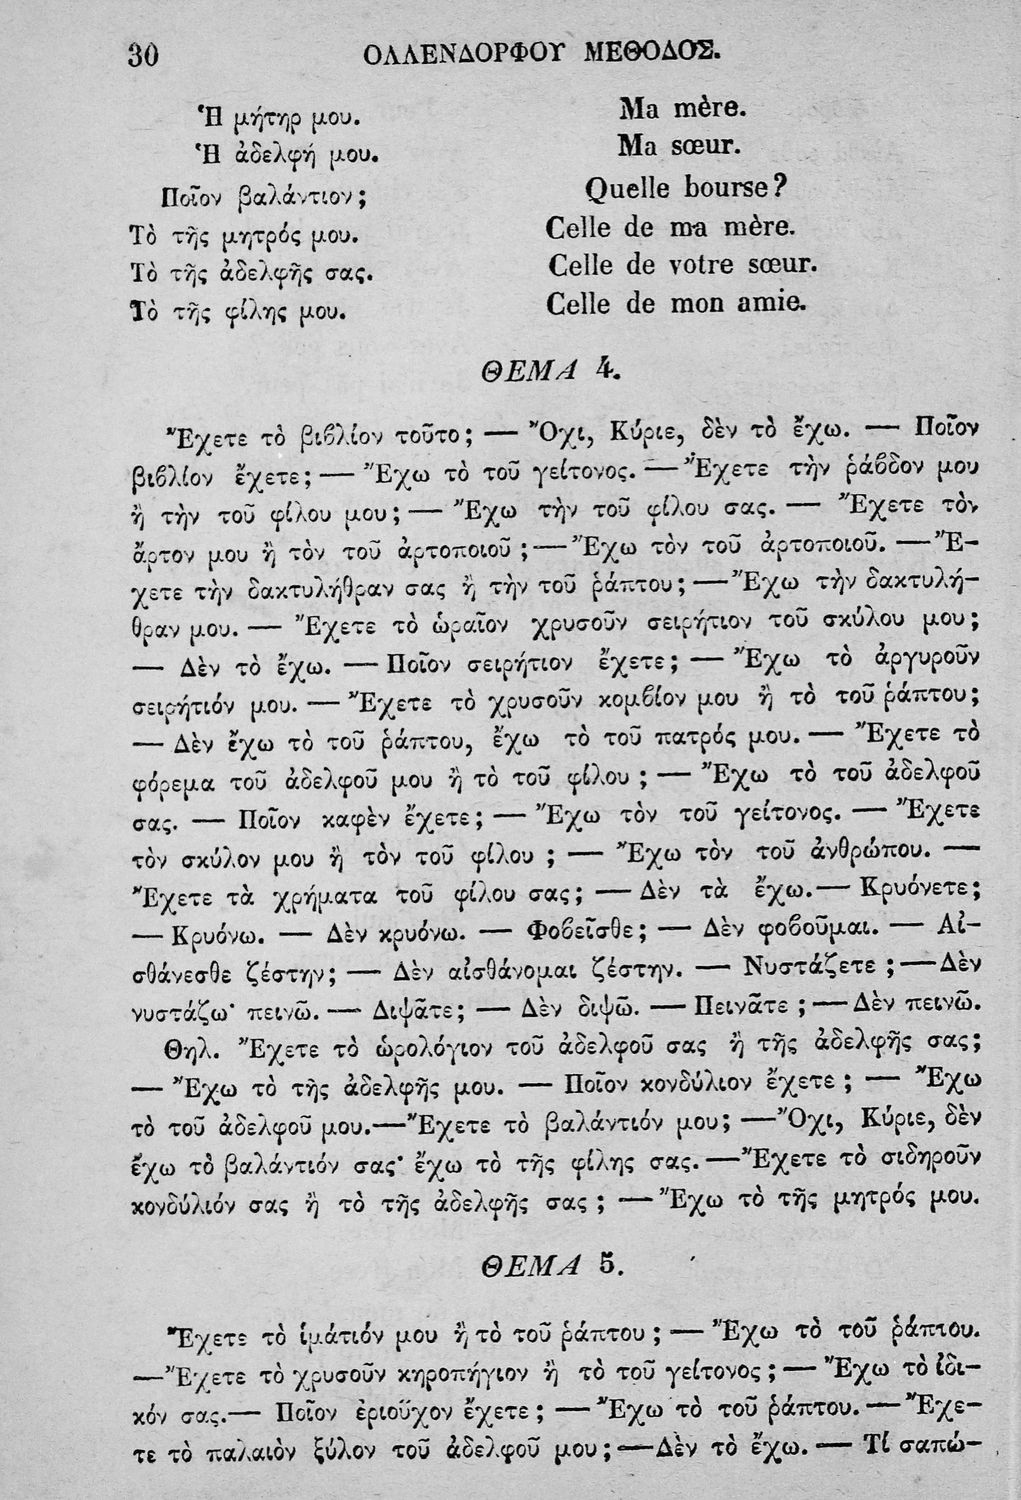 30 ΟΛΛΕΝΔΟΡΦΟΥ ΜΕΘΟΔΟΣ.
Ἡ μήτηρ μου. Ma mère.
Ἡ ἀδελφή μου. Ma sœur.
Ποῖον βαλάντιον; Quelle bourse?
Τὸ τῆς μητρός μου. Celle de ma mère.
Τὸ τῆς ἀδελφῆς σας. Celle de votre sœur.
Τὸ τῆς φίλης μου. Celle de mon amie.
ΘΕΜΑ 4.
Ἔχετε τὸ βιβλίον τοῦτο; — Ὄχι, Κύριε, δὲν τὸ ἔχω. — Ποῖον
βιβλίον ἔχετε; — Ἔχω τὸ τοῦ γείτονος. — Ἔχετε τὴν ῥάβδον μου
ἢ τὴν τοῦ φίλου μου; — Ἔχω τὴν τοῦ φίλου σας. — Ἔχετε τὸν
ἄρτον μου ἢ τὸν τοῦ ἀρτοποιοῦ; — Ἔχω τὸν τοῦ ἀρτοποιοῦ. — Ἔ-
χετε τὴν δακτυλήθραν σας ἢ τὴν τοῦ ῥάπτου; — Ἔχω τὴν δακτυλή-
θραν μου. — Ἔχετε τὸ ὡραῖον χρυσοῦν σειρήτιον τοῦ σκύλου μου;
— Δὲν τὸ ἔχω. — Ποῖον σειρήτιον ἔχετε; — Ἔχω τὸ ἀργυροῦν
σειρήτιόν μου. — Ἔχετε τὸ χρυσοῦν κομβίον μου ἢ τὸ τοῦ ῥάπτου;
— Δὲν ἔχω τὸ τοῦ ῥάπτου, ἔχω τὸ τοῦ πατρός μου. — Ἔχετε τὸ
φόρεμα τοῦ ἀδελφοῦ μου ἢ τὸ τοῦ φίλου; — Ἔχω τὸ τοῦ ἀδελφοῦ
σας. — Ποῖον καφὲν ἔχετε; — Ἔχω τὸν τοῦ γείτονος. — Ἔχετε
τὸν σκύλον μου ἢ τὸν τοῦ φίλου; — Ἔχω τὸν τοῦ ἀνθρώπου. —
Ἔχετε τὰ χρήματα τοῦ φίλου σας; — Δὲν τὰ ἔχω. — Κρυόνετε;
— Κρυόνω. — Δὲν κρυόνω. — Φοβεῖσθε; — Δὲν φοβοῦμαι. — Αἰ-
σθάνεσθε ζέστην; — Δὲν αἰσθάνομαι ζέστην. — Νυστάζετε; — Δὲν
νυστάζω· πεινῶ. — Διψᾶτε; — Δὲν διψῶ. — Πεινᾶτε; — Δὲν πεινῶ.
Θηλ. Ἔχετε τὸ ὡρολόγιον τοῦ ἀδελφοῦ σας ἢ τῆς ἀδελφῆς σας;
— Ἔχω τὸ τῆς ἀδελφῆς μου. — Ποῖον κονδύλιον ἔχετε; — Ἔχω
τὸ τοῦ ἀδελφοῦ μου. — Ἔχετε τὸ βαλάντιόν μου; — Ὄχι, Κύριε, δὲν
ἔχω τὸ βαλάντιόν σας· ἔχω τὸ τῆς φίλης σας. — Ἔχετε τὸ σιδηροῦν
κονδύλιόν σας ἢ τὸ τῆς ἀδελφῆς σας; — Ἔχω τὸ τῆς μητρός μου.
ΘΕΜΑ 5.
Ἔχετε τὸ ἱμάτιόν μου ἢ τὸ τοῦ ῥάπτου; — Ἔχω τὸ τοῦ ῥάπτου.
— Ἔχετε τὸ χρυσοῦν κηροπήγιον ἢ τὸ τοῦ γείτονος; — Ἔχω τὸ ἰδι-
κόν σας. — Ποῖον ἐριοῦχον ἔχετε; — Ἔχω τὸ τοῦ ῥάπτου. — Ἔχε-
τε τὸ παλαιὸν ξύλον τοῦ ἀδελφοῦ μου; — Δὲν τὸ ἔχω. — Τί σαπώ-